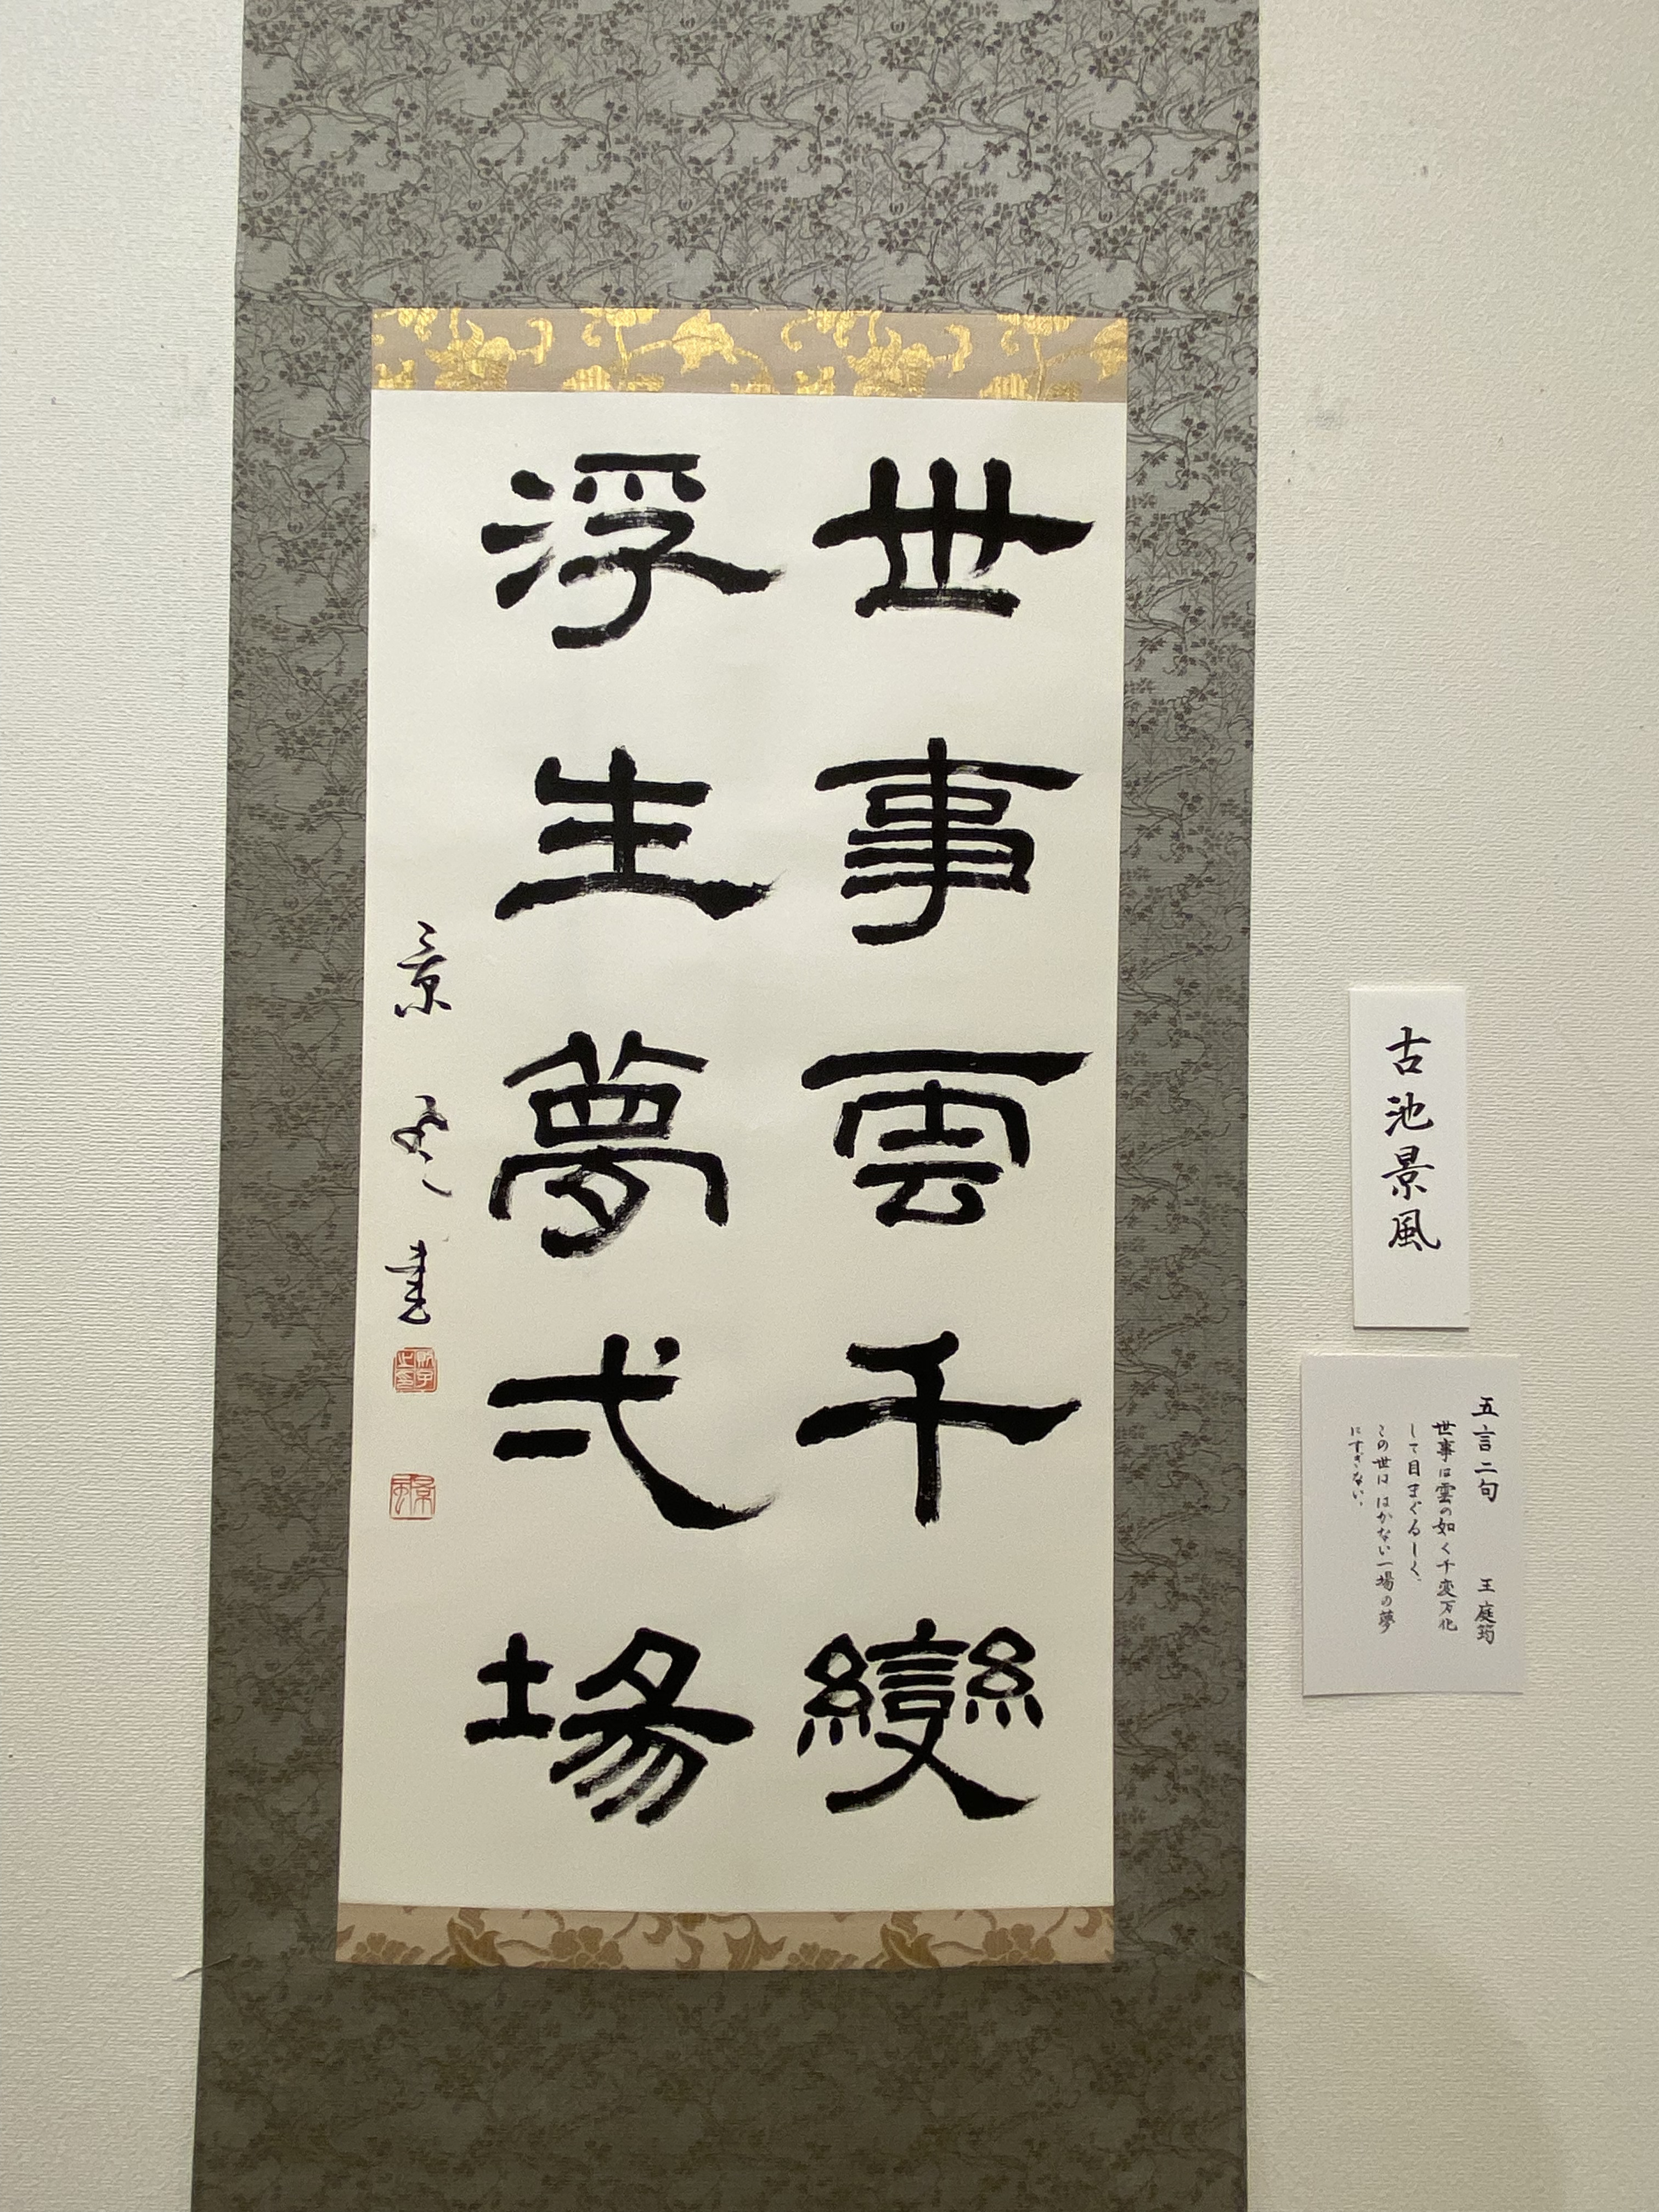 世事雲千變
浮生夢弌場
景風書
古池景風
五言二句　王庭筠
世事は雲の如く千変万化
して目まぐるしく、
この世は はかない一場の夢
にすぎない。